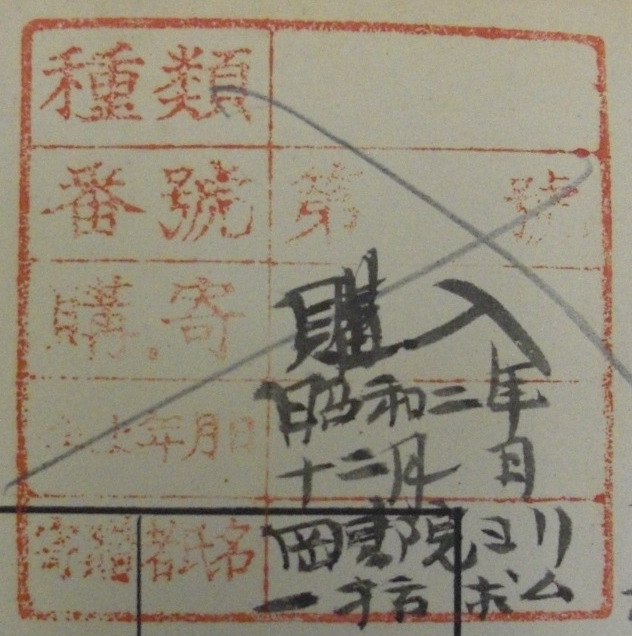 種類
番號 第 號
購.寄 購入
年月日 昭和二年
十二月 日
寄 者氏名 岡書院ヨリ
一括払